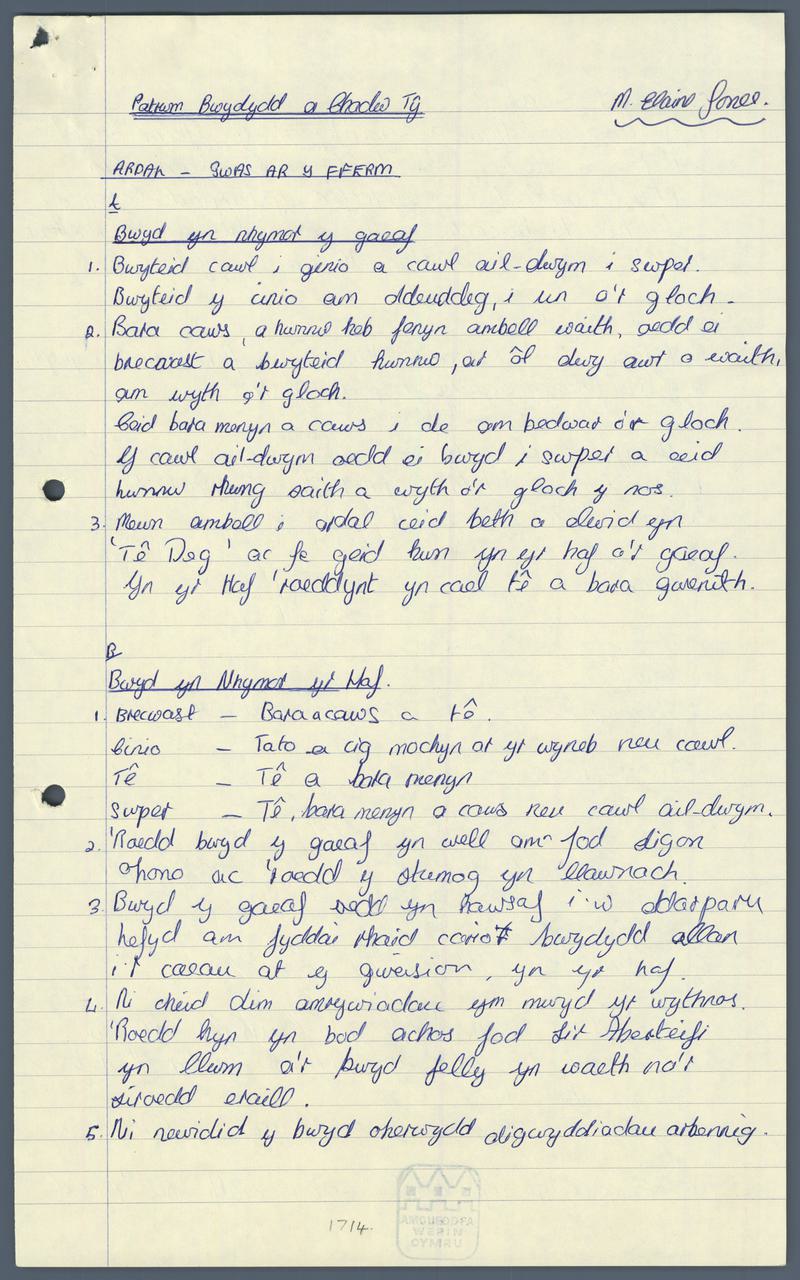 Patrwm Bwydydd a Chadw Tŷ
M. Elaine Jones.
ARDAL - GWAS AR Y FFERM
A
Bwyd yn nhymor y gaeaf
1. Bwyteid cawl i ginio a cawl ail-dwym i swper.
Bwyteid y cinio am ddeuddeg, i un o'r gloch.
2. Bara caws, a hwnnw heb fenyn ambell waith, oedd ei
brecwast a bwyteid hwnnw, ar ôl dwy awr o waith,
am wyth o'r gloch.
Ceid bara menyn a caws i de am bedwar o'r gloch.
Y cawl ail-dwym oedd ei bwyd i swper a ceid
hwnnw rhwng saith a wyth o'r gloch y nos.
3. Mewn ambell i ardal ceid beth a elwid yn
'Tê Deg' ac fe geid hwn yn yr haf a'r gaeaf.
Yn yr Haf 'roeddynt yn cael tê a bara gwenith.
B
Bwyd yn Nhymor yr Haf.
1. Brecwast - Bara a caws a tê.
Cinio - Tato a cig mochyn ar yr wyneb neu cawl.
Tê - Tê a bara menyn
Swper - Tê, bara menyn a caws neu cawl ail-dwym.
2. 'Roedd bwyd y gaeaf yn well am fod digon
ohono ac 'roedd y stumog yn llawnach.
3. Bwyd y gaeaf oedd yn hawsaf i'w ddarparu
hefyd am fyddai rhaid cario'r bwydydd allan
i'r caeau at y gweision, yn yr haf.
4. Ni cheid dim amrywiadau ym mwyd yr wythnos.
'Roedd hyn yn bod achos fod Sir Aberteifi
yn llwm a'r bwyd felly yn waeth na'r
siroedd eraill.
5. Ni newidid y bwyd oherwydd digwyddiadau arbennig.
1714.
AMGUEDDFA
WERIN
CYMRU